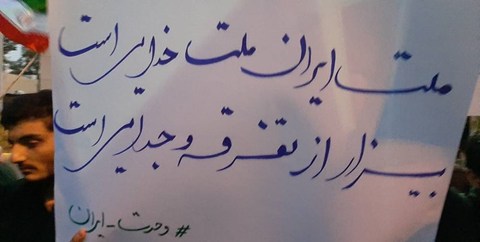 ملت ایران ملت خدایی است
بیزار از تفرقه و جدایی است
#وحدت-ایران